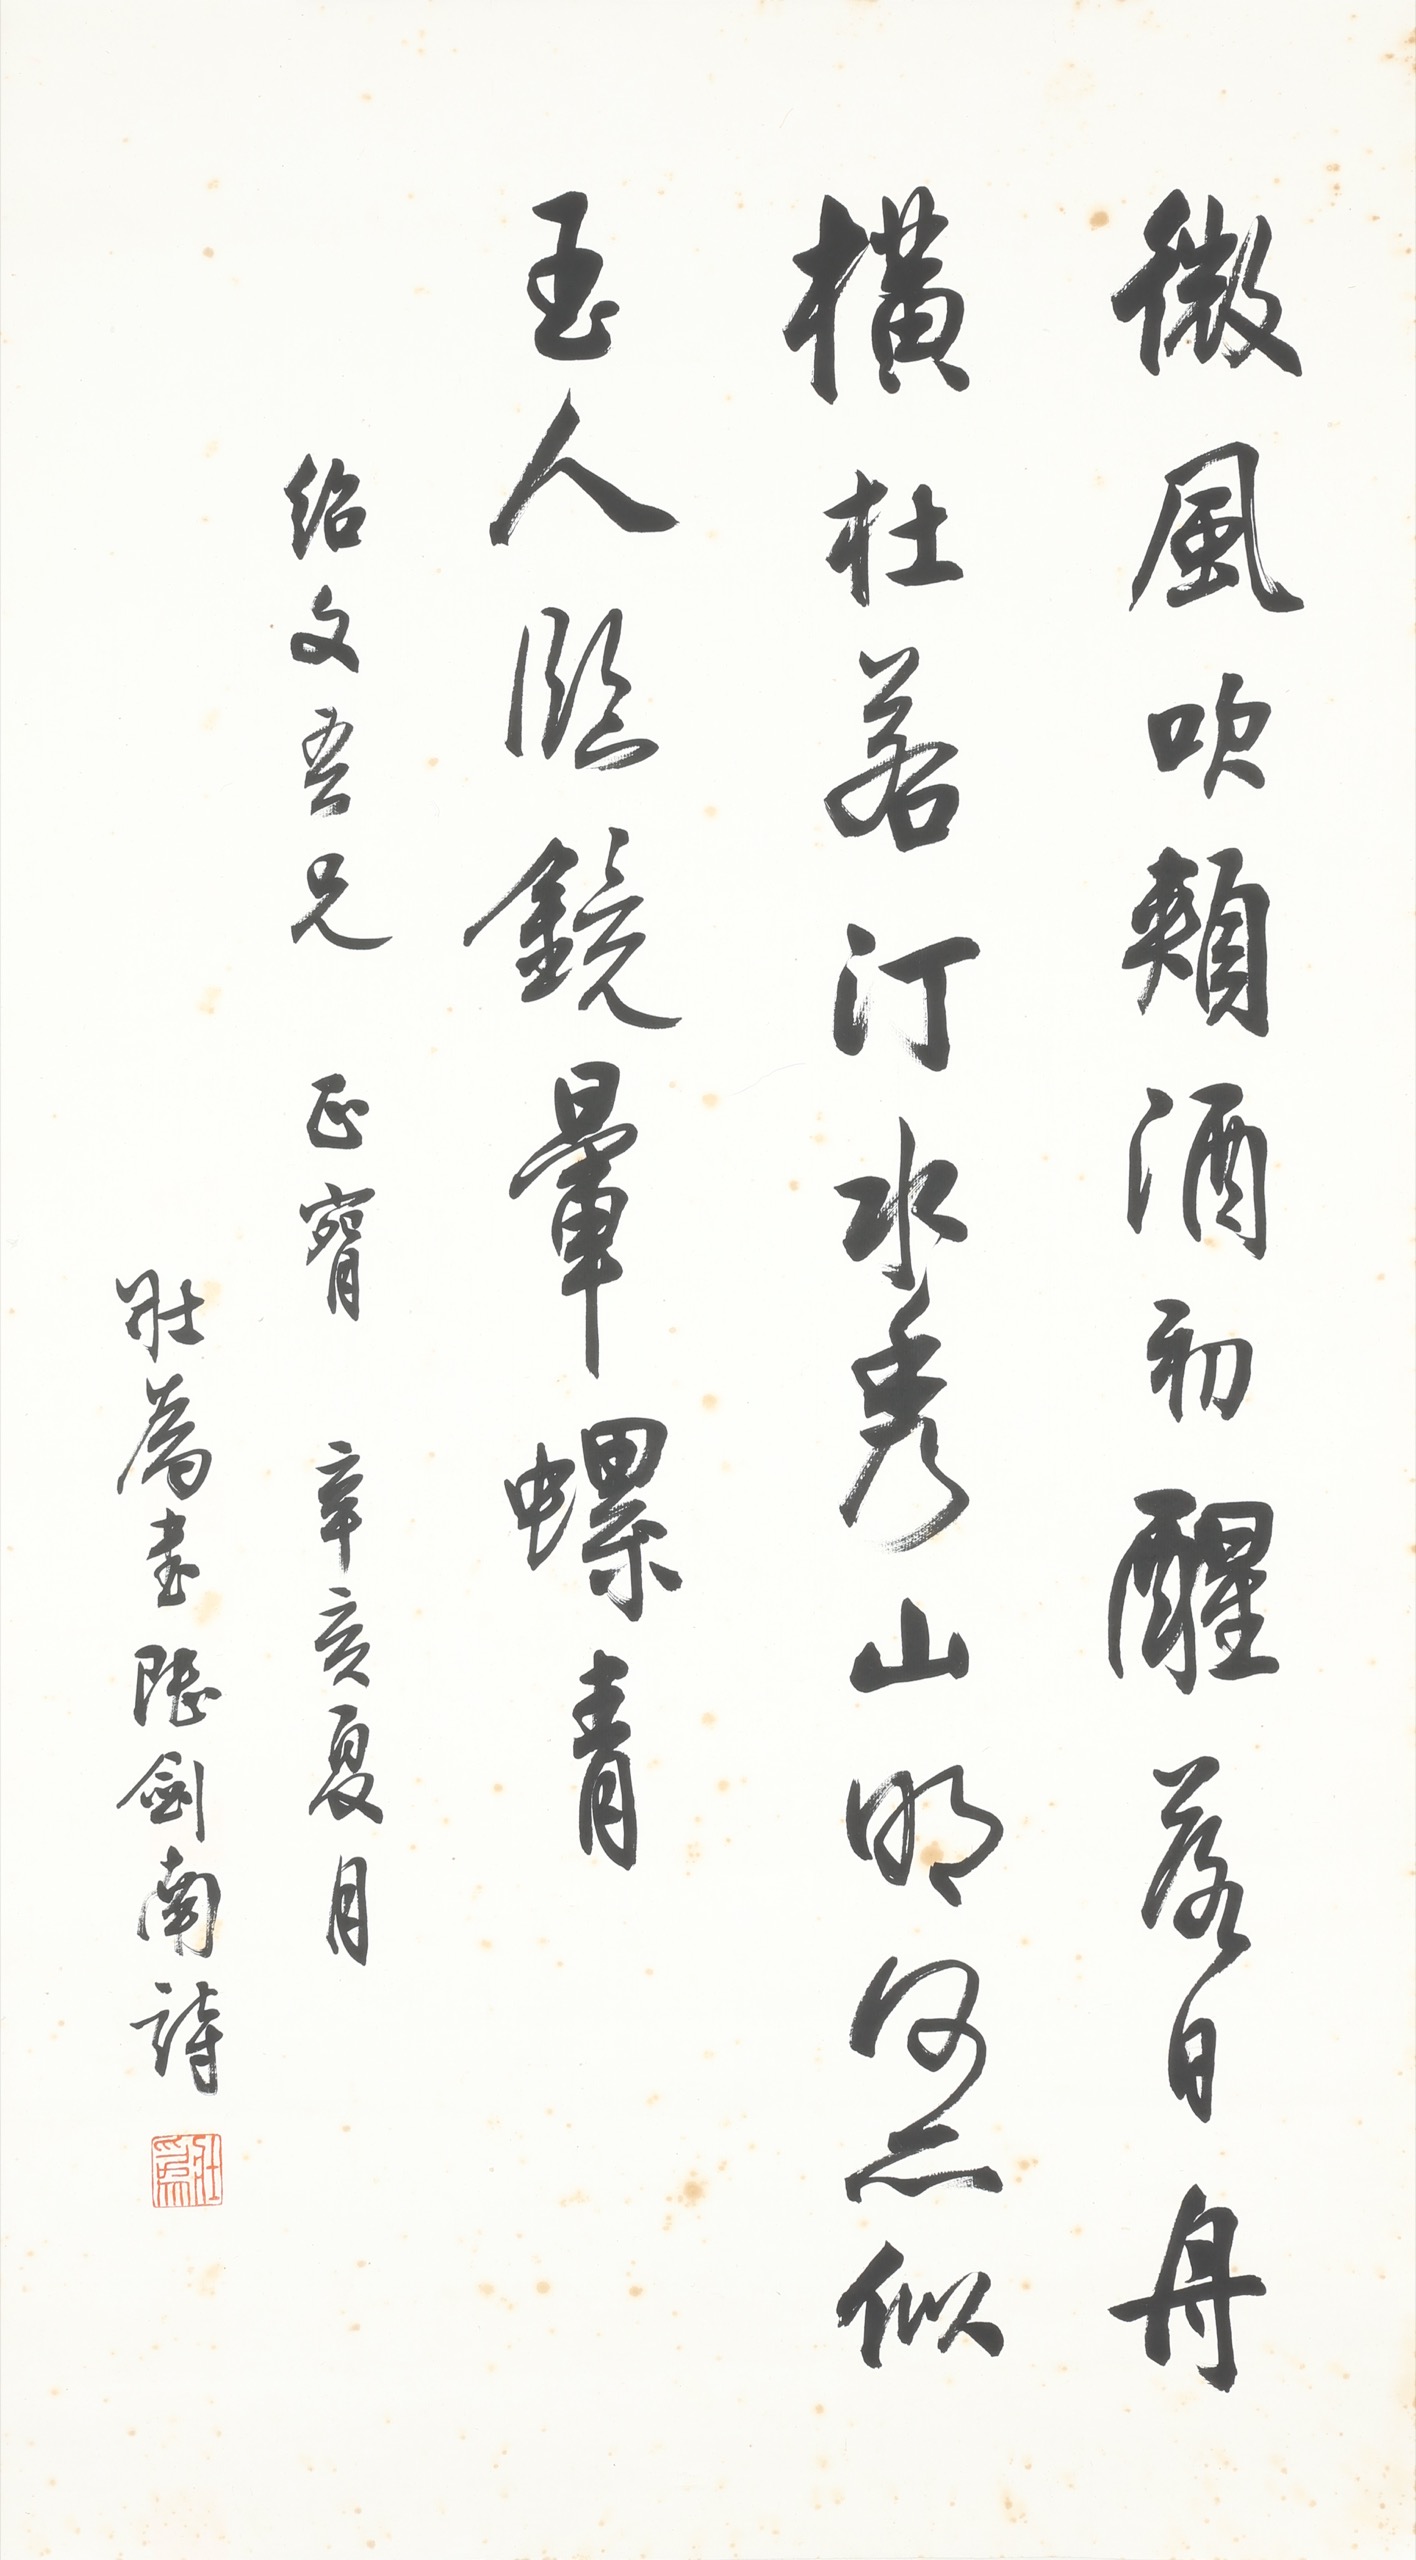 微風吹頰酒初醒落日舟
橫杜若汀水秀山明何所似
玉人臨鏡暈螺青
紹文吾兄 正腕 辛亥夏月
壯為書陸劍南詩
壯為